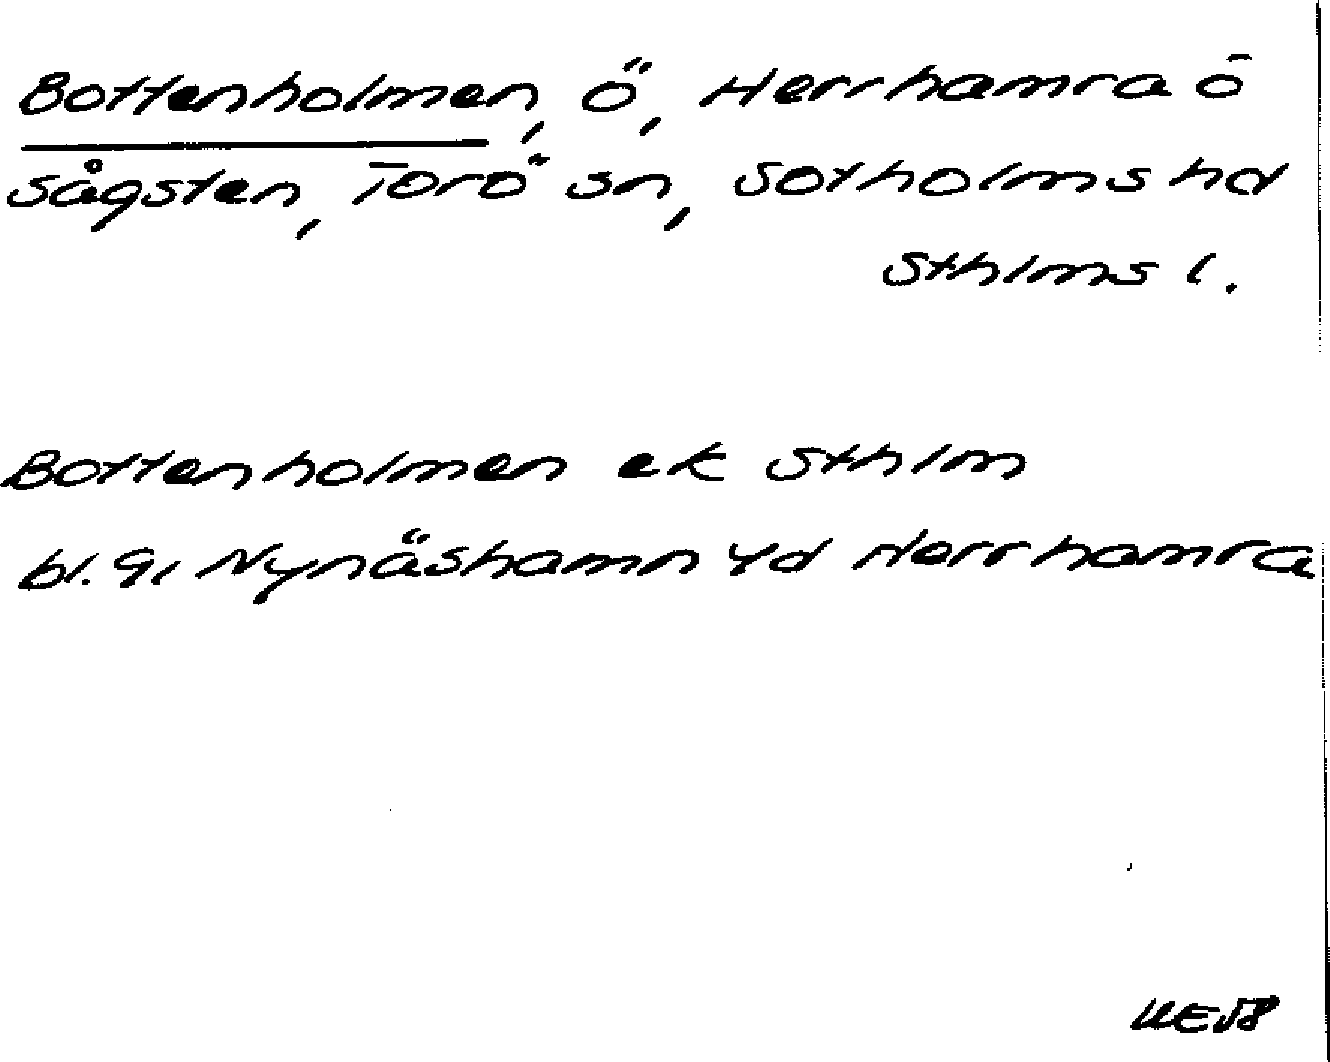 Bottenholmen, ö, Herrhamra ö
sågsten, Torö sn, Sotholms hd
Sthlms l.
Bottenholmen ek Sthlm
bl. 91 Nynäshamn 4d Herrhamra
UE58